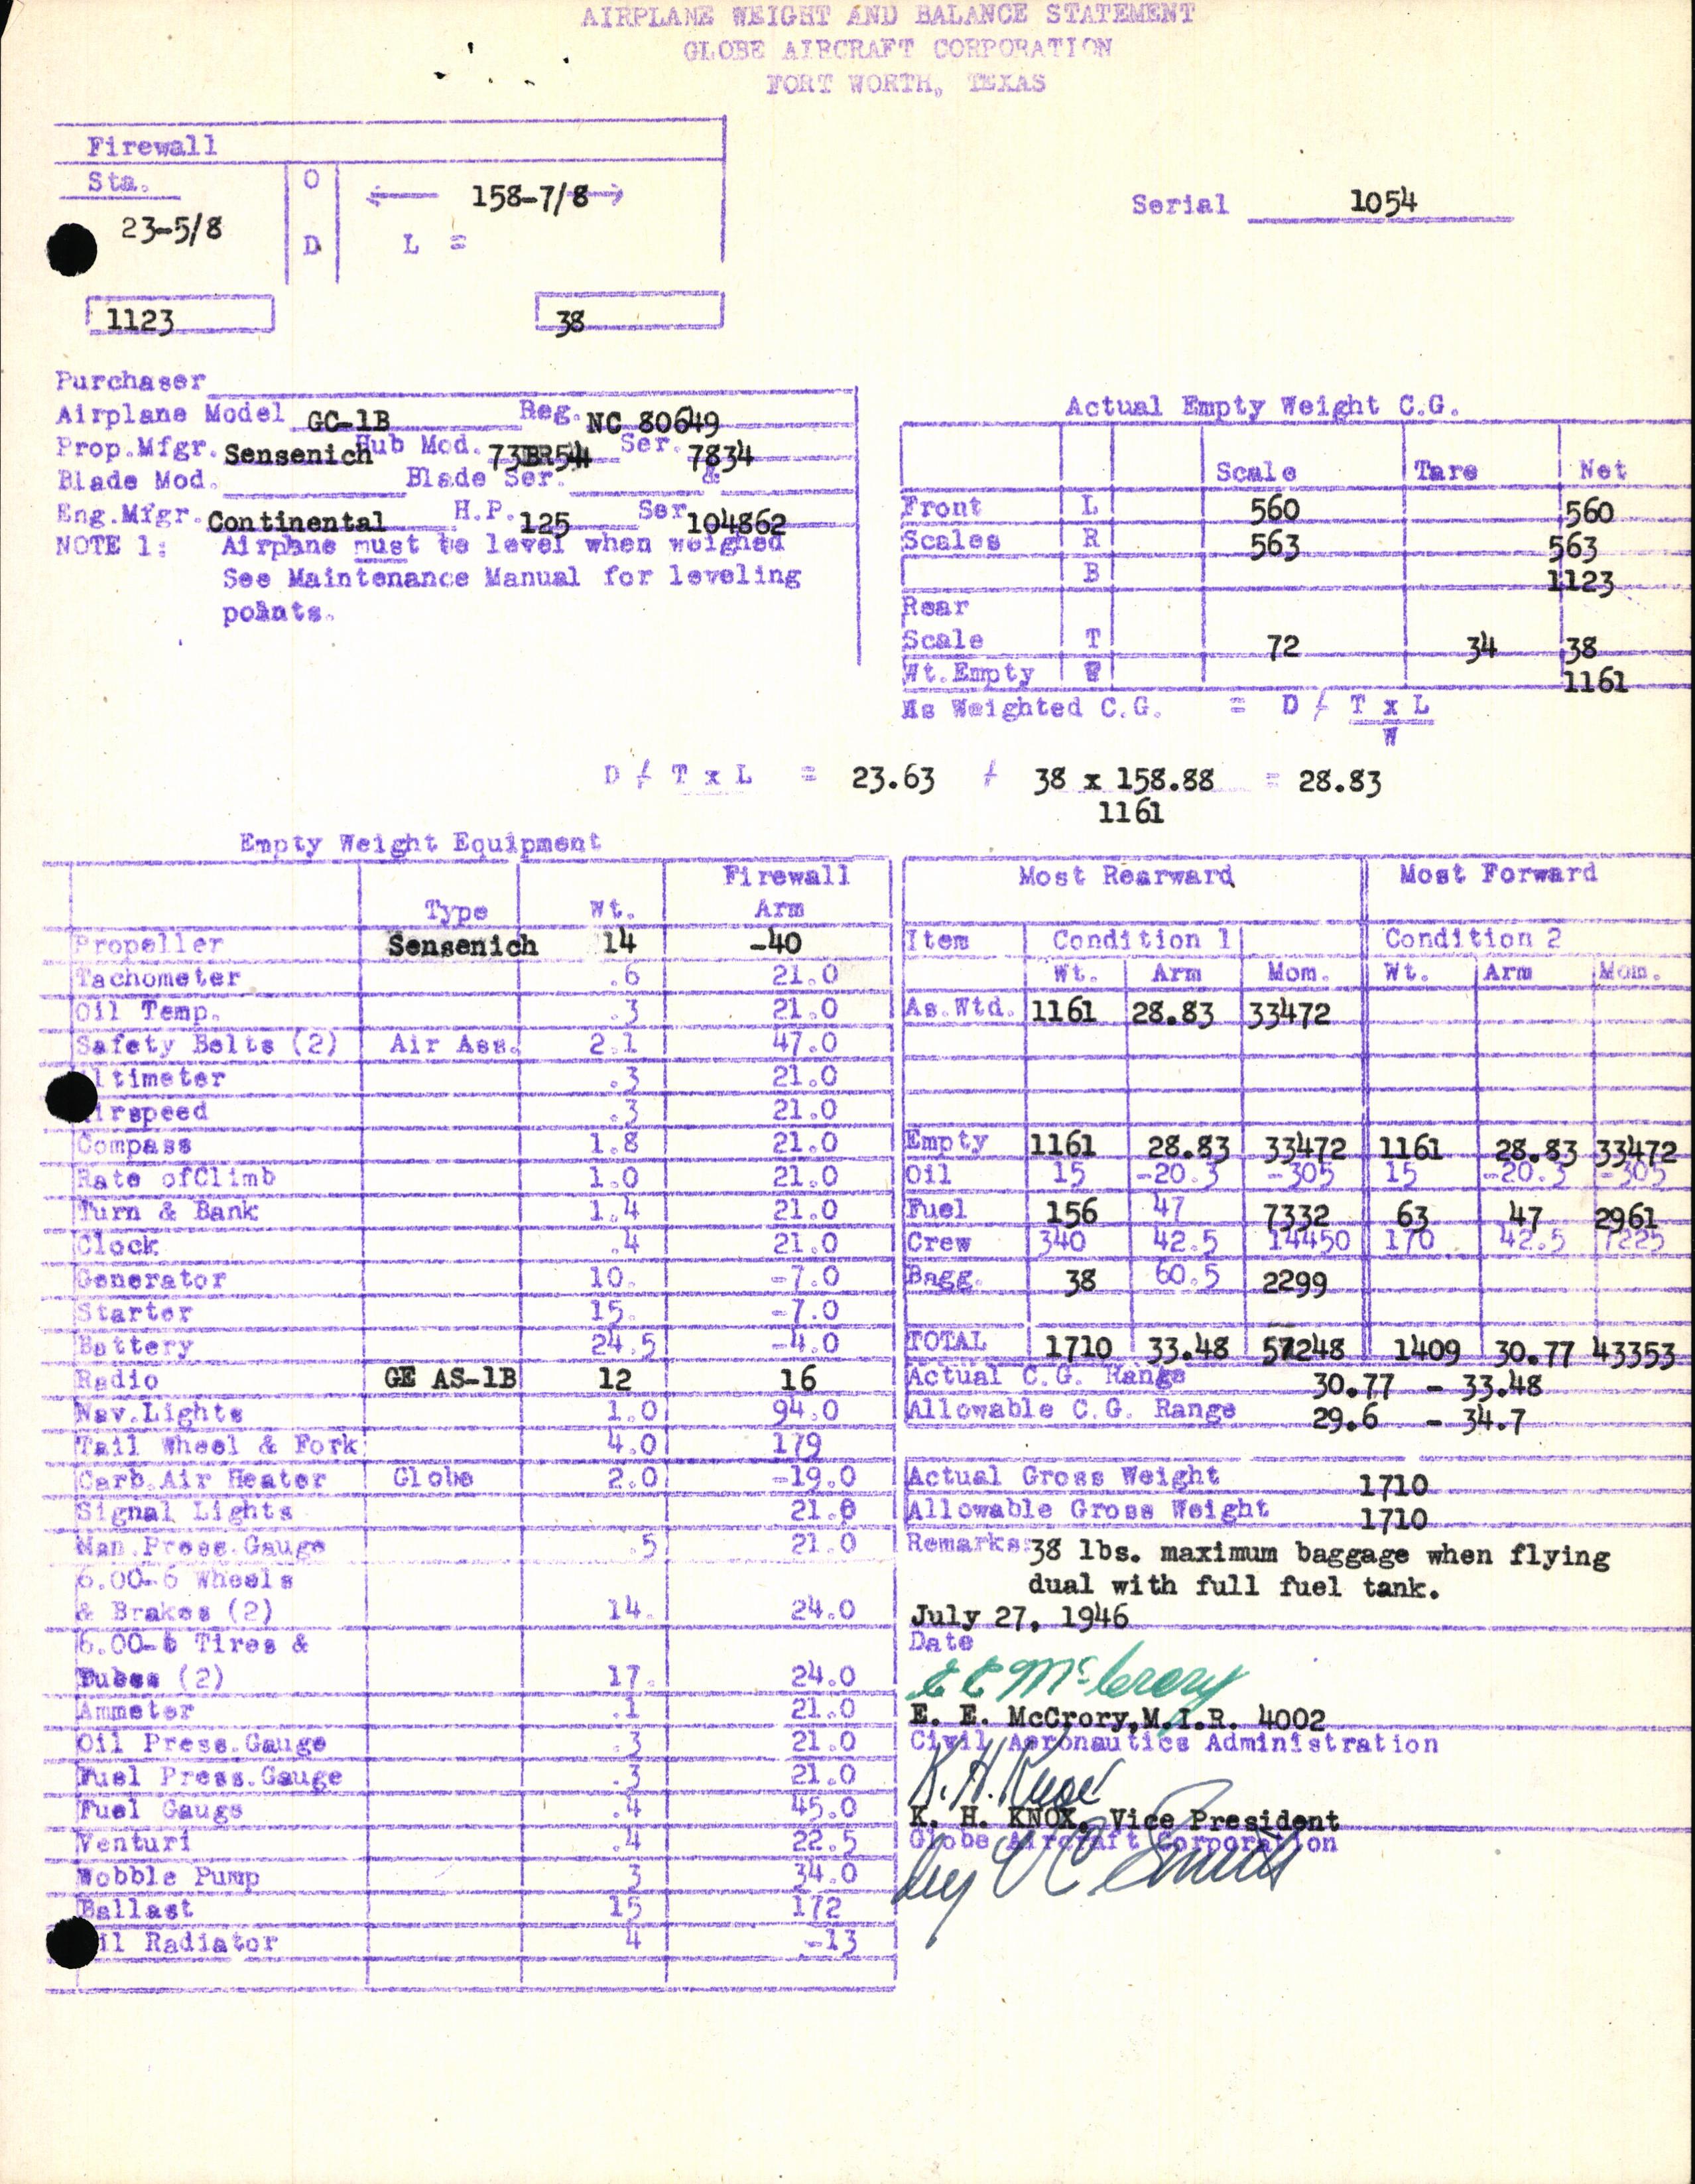 AIRPLANE WEIGHT AND BALANCE STATEMENT
GLOBE AIRCRAFT CORPORATION
FORT WORTH, TEXAS
Firewall
Sta. O ← 158-7/8 →
23-5/8 D L =
Serial 1054
1123 38
Purchaser
Airplane Model GC-1B Reg. NC 80649
Prop.Mfgr. Sensenich Hub Mod. 73BR54 Ser. 7834
Blade Mod. Blade Ser. &
Eng.Mfgr. Continental H.P. 125 Ser 104862
NOTE 1: Airplane must be level when weighed
See Maintenance Manual for leveling
points.
Actual Empty Weight C.G.
Scale Tare Net
Front L 560 560
Scales R 563 563
B 1123
Rear
Scale T 72 34 38
Wt.Empty W 1161
As Weighted C.G. = D / T x L
W
D / T x L = 23.63 / 38 x 158.88 = 28.83
1161
Empty Weight Equipment
Firewall
Type Wt. Arm
Propeller Sensenich 14 -40
Tachometer .6 21.0
Oil Temp. .3 21.0
Safety Belts (2) Air Ass. 2.1 47.0
ltimeter .3 21.0
irspeed .3 21.0
Compass 1.8 21.0
Rate ofClimb 1.0 21.0
Turn & Bank 1.4 21.0
Clock .4 21.0
Generator 10. -7.0
Starter 15. -7.0
Battery 24.5 -4.0
Radio GE AS-1B 12 16
Nav.Lights 1.0 94.0
Tail Wheel & Fork 4.0 179
Carb.Air Heater Globe 2.0 -19.0
Signal Lights 21.0
Man.Press.Gauge .5 21.0
6.00-6 Wheels
& Brakes (2) 14. 24.0
6.00-6 Tires &
Tubes (2) 17. 24.0
Ammeter .1 21.0
Oil Press.Gauge .3 21.0
Fuel Press.Gauge .3 21.0
Fuel Gaugs .4 45.0
Venturi .4 22.5
Wobble Pump 3 34.0
Ballast 15 172
il Radiator 4 -13
Most Rearward Most Forward
Item Condition 1 Condition 2
Wt. Arm Mom. Wt. Arm Mom.
As.Wtd. 1161 28.83 33472
Empty 1161 28.83 33472 1161 28.83 33472
Oil 15 -20.3 -305 15 -20.3 -305
Fuel 156 47 7332 63 47 2961
Crew 340 42.5 14450 170 42.5 7225
Bagg. 38 60.5 2299
TOTAL 1710 33.48 57248 1409 30.77 43353
Actual C.G. Range 30.77 - 33.48
Allowable C.G. Range 29.6 - 34.7
Actual Gross Weight 1710
Allowable Gross Weight 1710
Remarks: 38 lbs. maximum baggage when flying
dual with full fuel tank.
July 27, 1946
Date
E E McCrory
E. E. McCrory,M.I.R. 4002
Civil Aeronautics Administration
K. H. Knox
K. H. KNOX, Vice President
Globe Aircraft Corporation
by